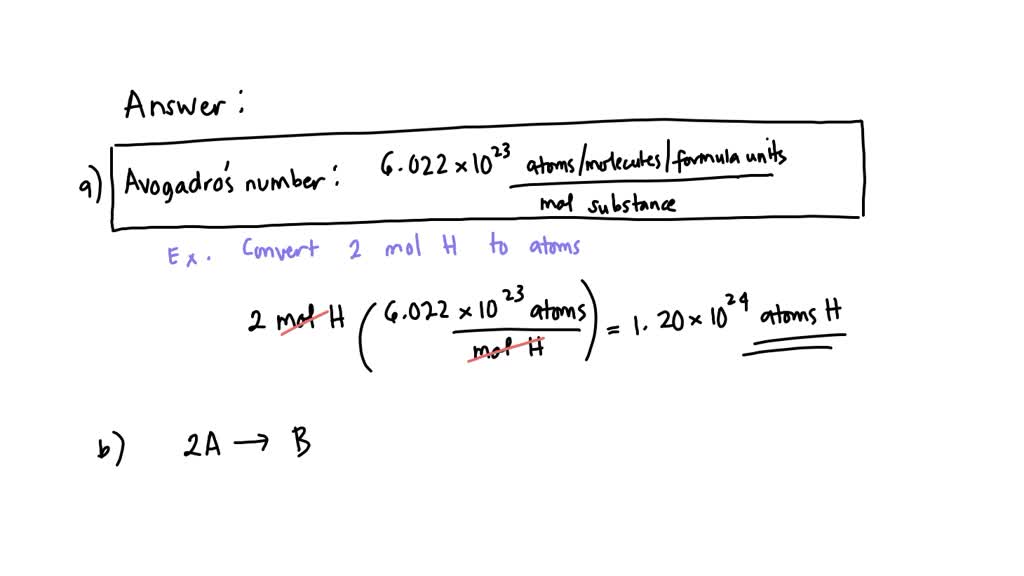 Answer:
a) Avogadro's number: 6.022 × 10²³ atoms/molecules/formula units
mol substance
Ex. Convert 2 mol H to atoms
2 mol H ( 6.022 × 10²³ atoms / mol H ) = 1.20 × 10²⁴ atoms H
b) 2A → B